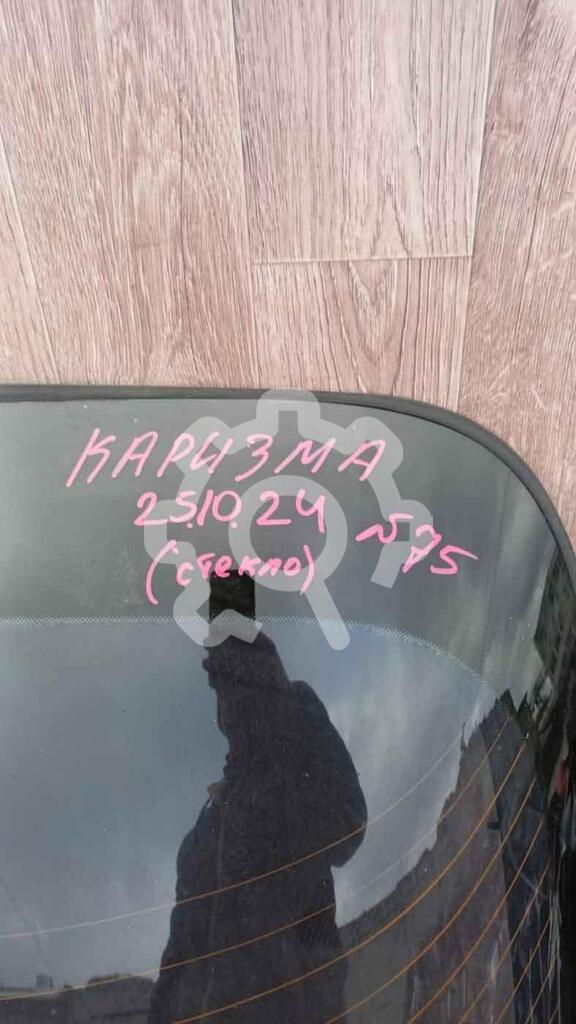 КАРИЗМА
25.10.24
№75
(стекло)